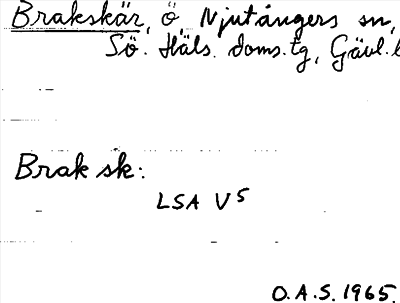 Brakskär, ö, Njutångers sn,
Sö. Häls. doms.tg, Gävl. l
Braksk:
LSA V5
O.A.S. 1965.